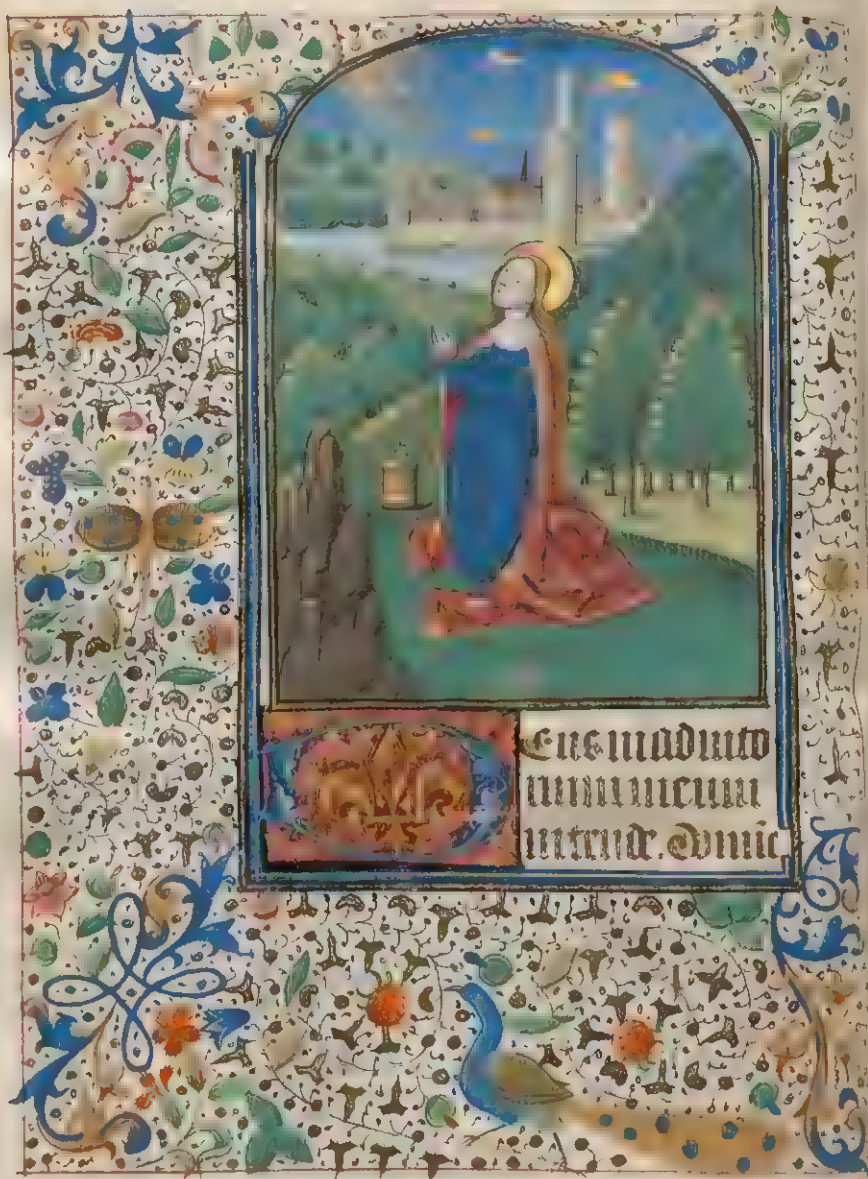 eus in adiuto
rium meum
intende domine